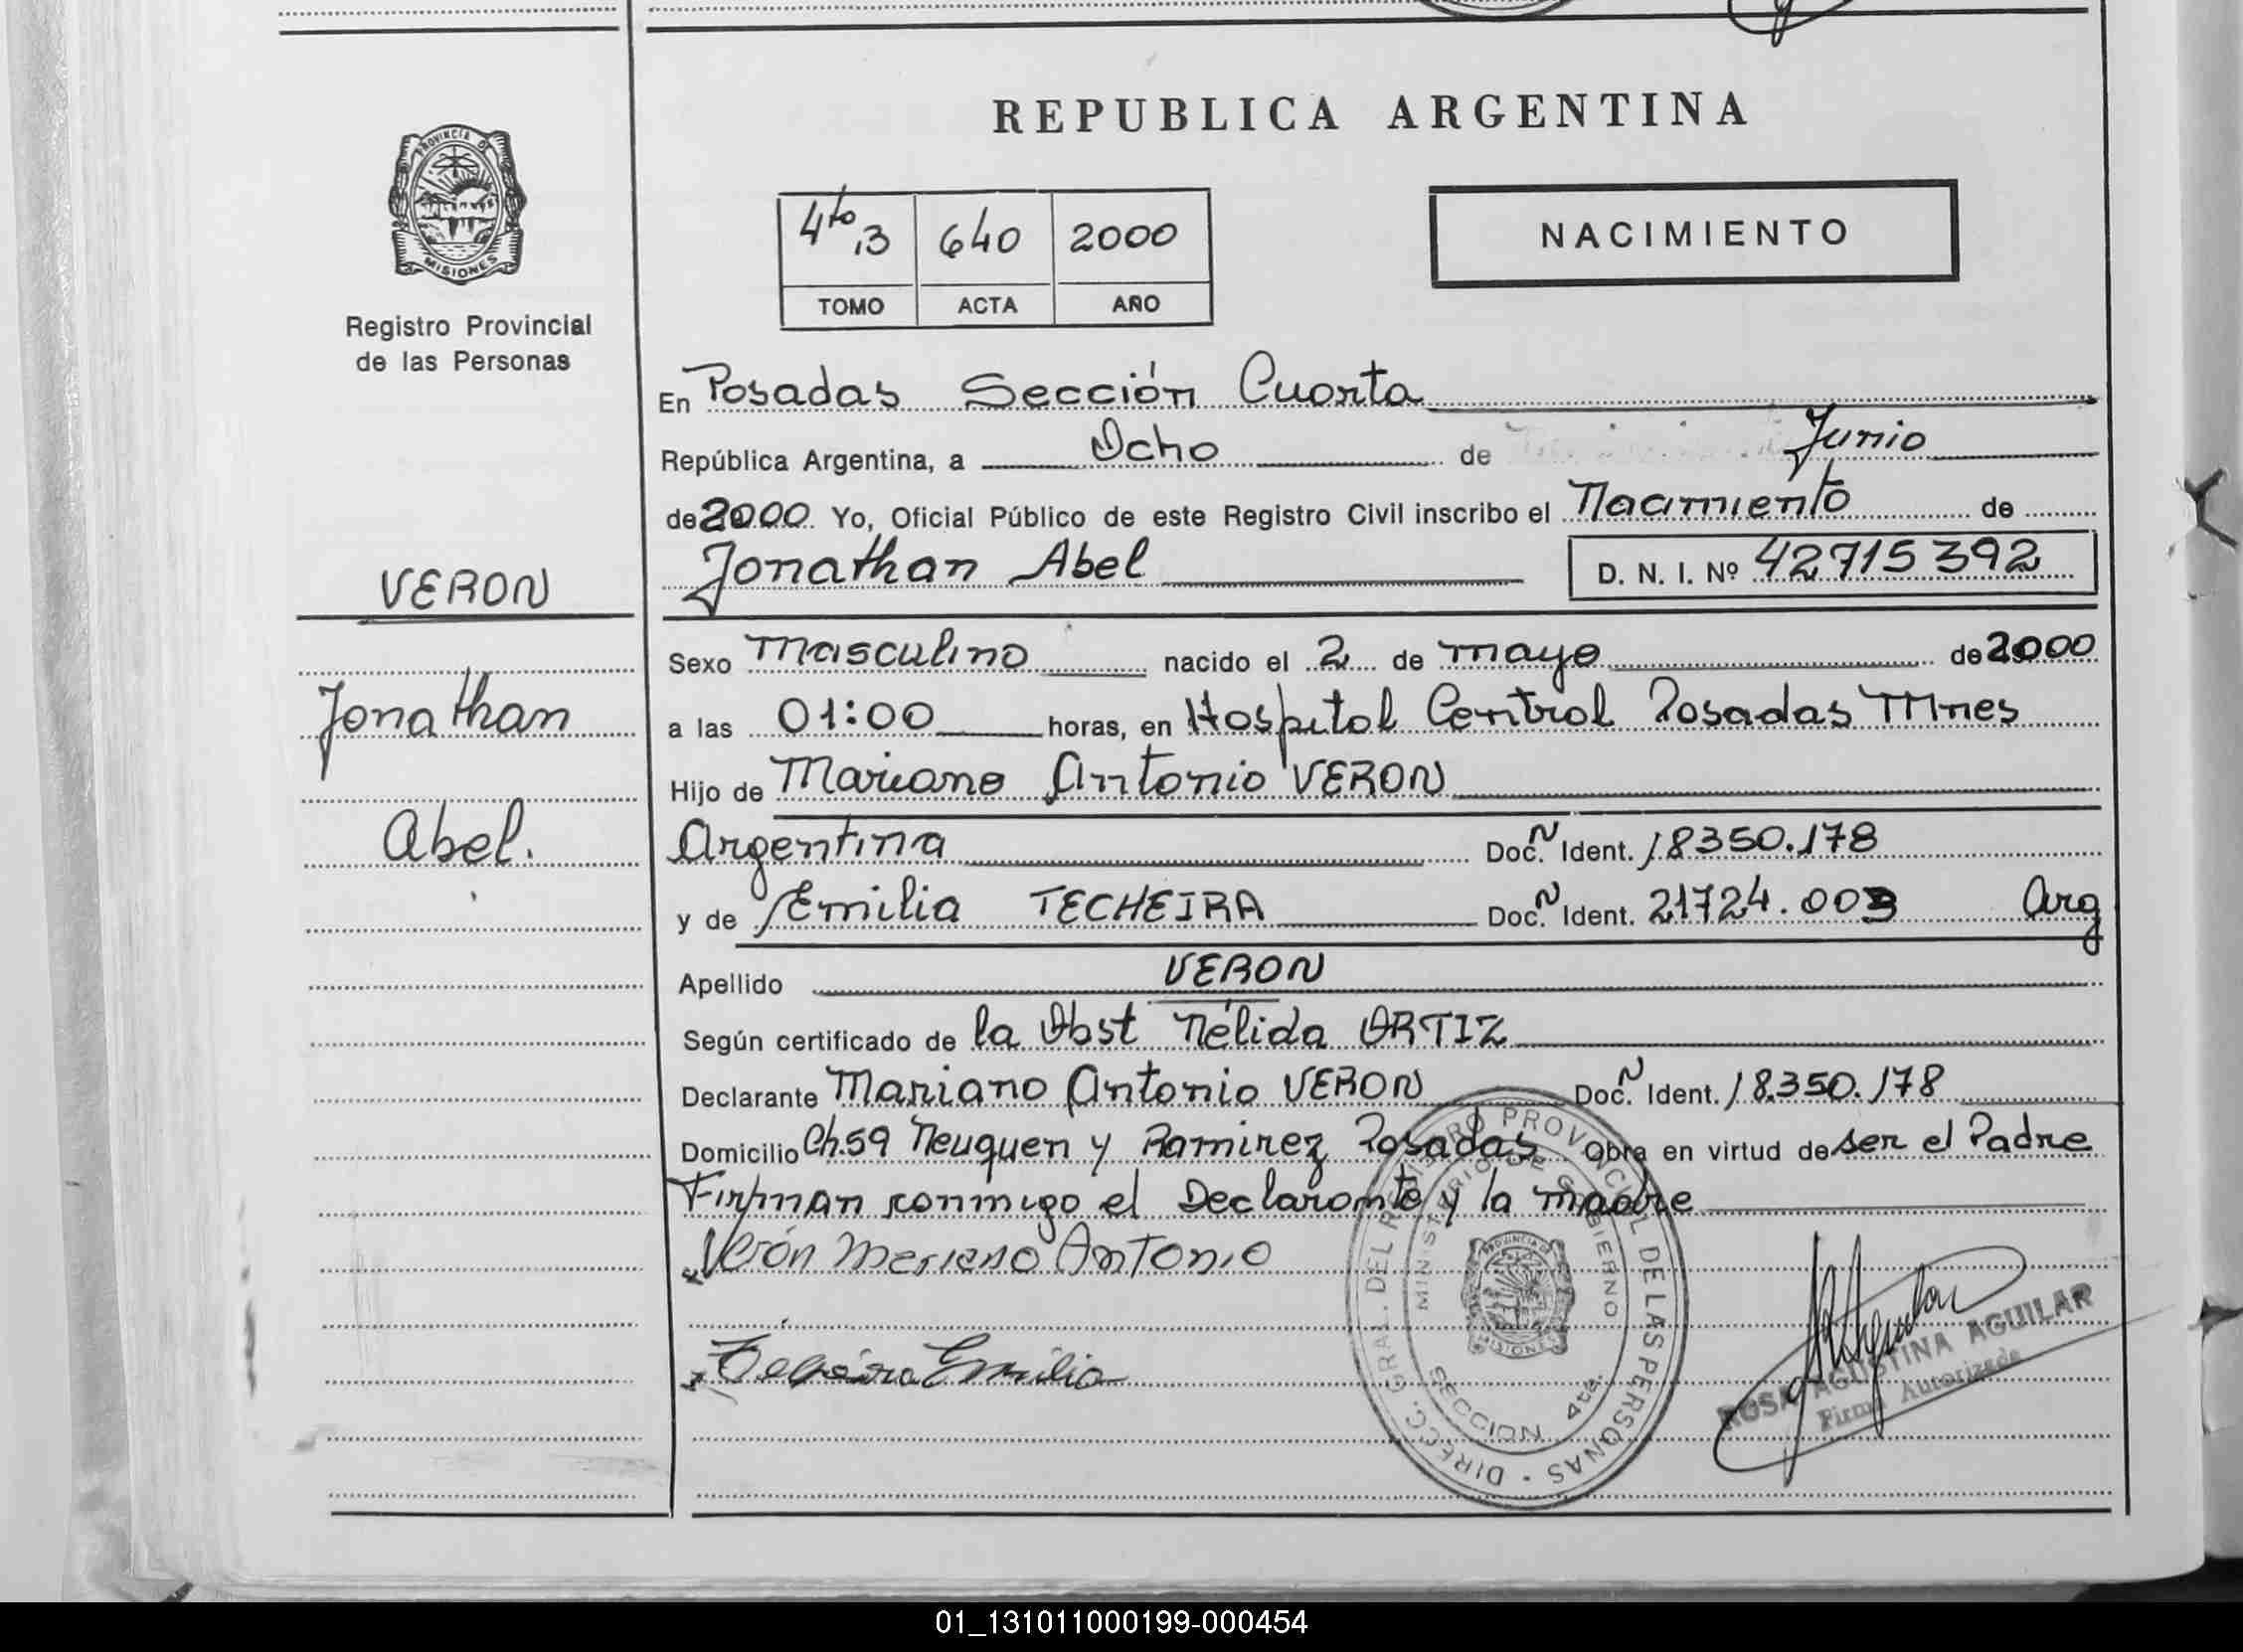 REPUBLICA ARGENTINA
PROVINCIA DE
MISIONES
Registro Provincial
de las Personas
4to 13 640 2000
TOMO ACTA AÑO
NACIMIENTO
En Posadas Sección Cuarta
República Argentina, a Ocho de Junio
de 2000 Yo, Oficial Público de este Registro Civil inscribo el Nacimiento de
Jonathan Abel D. N. I. Nº 42715392
VERON
Jonathan
Abel.
Sexo Masculino nacido el 2 de mayo de 2000
a las 01:00 horas, en Hospital Central Posadas Mnes
Hijo de Mariano Antonio VERON
Argentina Doc. N Ident. 18350.178
y de Emilia TECHEIRA Doc. N Ident. 21724.003 Arg
Apellido VERON
Según certificado de la Obst Nélida ORTIZ
Declarante Mariano Antonio VERON Doc. N Ident. 18.350.178
Domicilio Ch.59 Neuquen y Ramirez Posadas Obra en virtud de ser el Padre
Firman conmigo el Declarante y la madre
Verón Mariano Antonio
Emilia
DIRECC. GRAL. DEL REGISTRO PROVINCIAL DE LAS PERSONAS
MINISTERIO DE GOBIERNO
SECCION 4ta.
ROSA AGUSTINA AGUILAR
Firma Autorizada
01_131011000199-000454